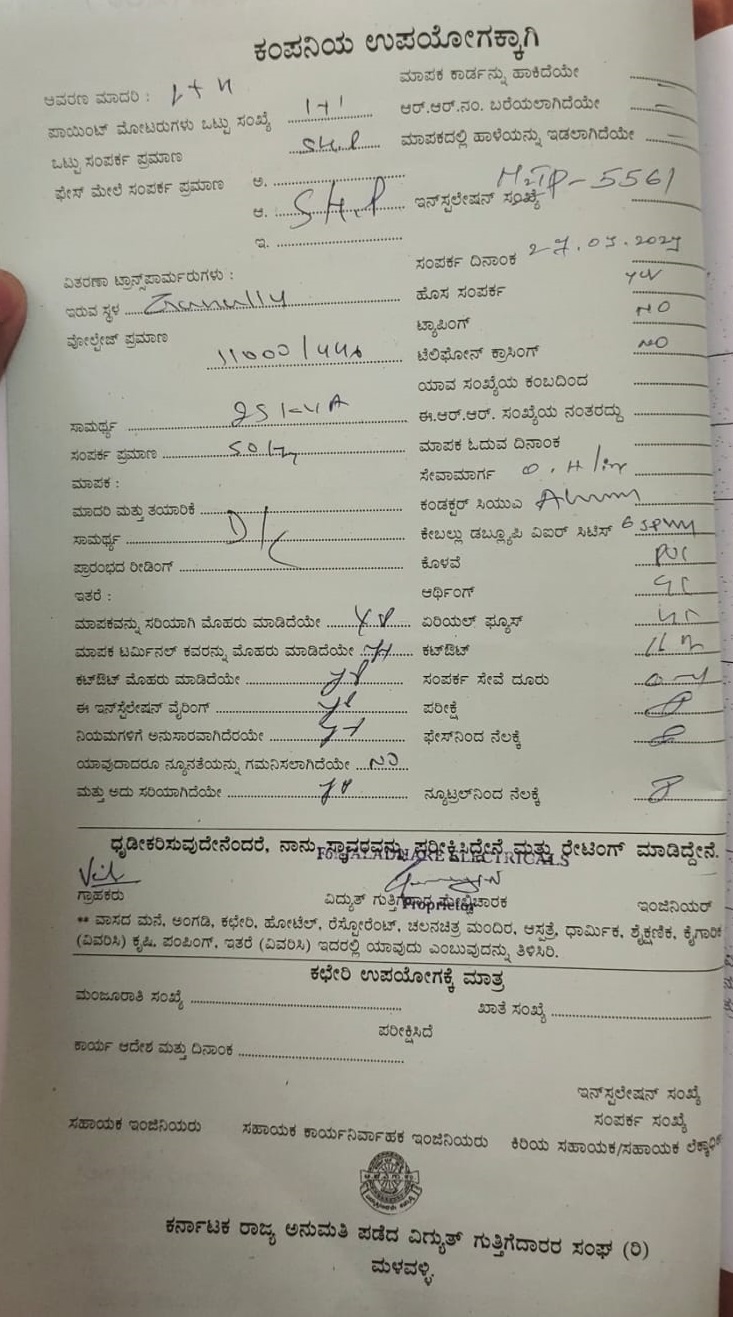 ಕಂಪನಿಯ ಉಪಯೋಗಕ್ಕಾಗಿ
ಆವರಣ ಮಾದರಿ :
ಮಾಪಕ ಕಾರ್ಡನ್ನು ಹಾಕಿದೆಯೇ
ಪಾಯಿಂಟ್ ಮೋಟರುಗಳು ಒಟ್ಟು ಸಂಖ್ಯೆ 1+1
ಆರ್.ಆರ್.ನಂ. ಬರೆಯಲಾಗಿದೆಯೇ
ಒಟ್ಟು ಸಂಪರ್ಕ ಪ್ರಮಾಣ 5H.P
ಮಾಪಕದಲ್ಲಿ ಹಾಳೆಯನ್ನು ಇಡಲಾಗಿದೆಯೇ
ಫೇಸ್ ಮೇಲೆ ಸಂಪರ್ಕ ಪ್ರಮಾಣ ಅ.
ಆ. 5H.P
ಇನ್‌ಸ್ಟಲೇಷನ್ ಸಂಖ್ಯೆ 5561
ಇ.
ವಿತರಣಾ ಟ್ರಾನ್ಸ್‌ಪಾರ್ಮರುಗಳು :
ಸಂಪರ್ಕ ದಿನಾಂಕ
ಇರುವ ಸ್ಥಳ
ಹೊಸ ಸಂಪರ್ಕ
ವೋಲ್ಟೇಜ್ ಪ್ರಮಾಣ 11000/440
ಟ್ಯಾಪಿಂಗ್ NO
ಟೆಲಿಫೋನ್ ಕ್ರಾಸಿಂಗ್ NO
ಯಾವ ಸಂಖ್ಯೆಯ ಕಂಬದಿಂದ
ಸಾಮರ್ಥ್ಯ 25 KVA
ಈ.ಆರ್.ಆರ್. ಸಂಖ್ಯೆಯ ನಂತರದ್ದು
ಸಂಪರ್ಕ ಪ್ರಮಾಣ 50 Hz
ಮಾಪಕ ಓದುವ ದಿನಾಂಕ
ಮಾಪಕ :
ಸೇವಾಮಾರ್ಗ O.H line
ಮಾದರಿ ಮತ್ತು ತಯಾರಿಕೆ
ಕಂಡಕ್ಟರ್ ಸಿಯುಎ
ಸಾಮರ್ಥ್ಯ
ಕೇಬಲ್ಲು ಡಬ್ಲ್ಯೂಪಿ ವಿಐರ್ ಸಿಟಿಸ್
ಪ್ರಾರಂಭದ ರೀಡಿಂಗ್
ಕೊಳವೆ PVC
ಇತರೆ :
ಆರ್ಥಿಂಗ್
ಮಾಪಕವನ್ನು ಸರಿಯಾಗಿ ಮೊಹರು ಮಾಡಿದೆಯೇ
ಏರಿಯಲ್ ಫ್ಯೂಸ್
ಮಾಪಕ ಟರ್ಮಿನಲ್ ಕವರನ್ನು ಮೊಹರು ಮಾಡಿದೆಯೇ
ಕಟ್‌ಔಟ್
ಕಟ್‌ಔಟ್ ಮೊಹರು ಮಾಡಿದೆಯೇ
ಸಂಪರ್ಕ ಸೇವೆ ದೂರು
ಈ ಇನ್‌ಸ್ಟೆಲೇಷನ್ ವೈರಿಂಗ್
ಪರೀಕ್ಷೆ
ನಿಯಮಗಳಿಗೆ ಅನುಸಾರವಾಗಿದೆರಯೇ
ಫೇಸ್‌ನಿಂದ ನೆಲಕ್ಕೆ
ಯಾವುದಾದರೂ ನ್ಯೂನತೆಯನ್ನು ಗಮನಿಸಲಾಗಿದೆಯೇ NO
ಮತ್ತು ಅದು ಸರಿಯಾಗಿದೆಯೇ
ನ್ಯೂಟ್ರಲ್‌ನಿಂದ ನೆಲಕ್ಕೆ
ಧೃಡೀಕರಿಸುವುದೇನೆಂದರೆ, ನಾನು ಸ್ಥಾವರವನ್ನು ಪರೀಕ್ಷಿಸಿದ್ದೇನೆ ಮತ್ತು ರೇಟಿಂಗ್ ಮಾಡಿದ್ದೇನೆ.
For JALADHARE ELECTRICALS
ಗ್ರಾಹಕರು
ವಿದ್ಯುತ್ ಗುತ್ತಿಗೆದಾರ ಮೇಲ್ವಿಚಾರಕ
ಇಂಜಿನಿಯರ್
Proprietor
** ವಾಸದ ಮನೆ, ಅಂಗಡಿ, ಕಛೇರಿ, ಹೋಟೆಲ್, ರೆಸ್ಟೋರೆಂಟ್, ಚಲನಚಿತ್ರ ಮಂದಿರ, ಆಸ್ಪತ್ರೆ, ಧಾರ್ಮಿಕ, ಶೈಕ್ಷಣಿಕ, ಕೈಗಾರಿಕ
(ವಿವರಿಸಿ) ಕೃಷಿ, ಪಂಪಿಂಗ್, ಇತರೆ (ವಿವರಿಸಿ) ಇದರಲ್ಲಿ ಯಾವುದು ಎಂಬುವುದನ್ನು ತಿಳಿಸಿರಿ.
ಕಛೇರಿ ಉಪಯೋಗಕ್ಕೆ ಮಾತ್ರ
ಮಂಜೂರಾತಿ ಸಂಖ್ಯೆ
ಖಾತೆ ಸಂಖ್ಯೆ
ಪರೀಕ್ಷಿಸಿದೆ
ಕಾರ್ಯ ಆದೇಶ ಮತ್ತು ದಿನಾಂಕ
ಇನ್‌ಸ್ಟಲೇಷನ್ ಸಂಖ್ಯೆ
ಸಂಪರ್ಕ ಸಂಖ್ಯೆ
ಸಹಾಯಕ ಇಂಜಿನಿಯರು
ಸಹಾಯಕ ಕಾರ್ಯನಿರ್ವಾಹಕ ಇಂಜಿನಿಯರು
ಕಿರಿಯ ಸಹಾಯಕ/ಸಹಾಯಕ
ಕರ್ನಾಟಕ ರಾಜ್ಯ ಅನುಮತಿ ಪಡೆದ ವಿದ್ಯುತ್ ಗುತ್ತಿಗೆದಾರರ ಸಂಘ (ರಿ)
ಮಳವಳ್ಳಿ.